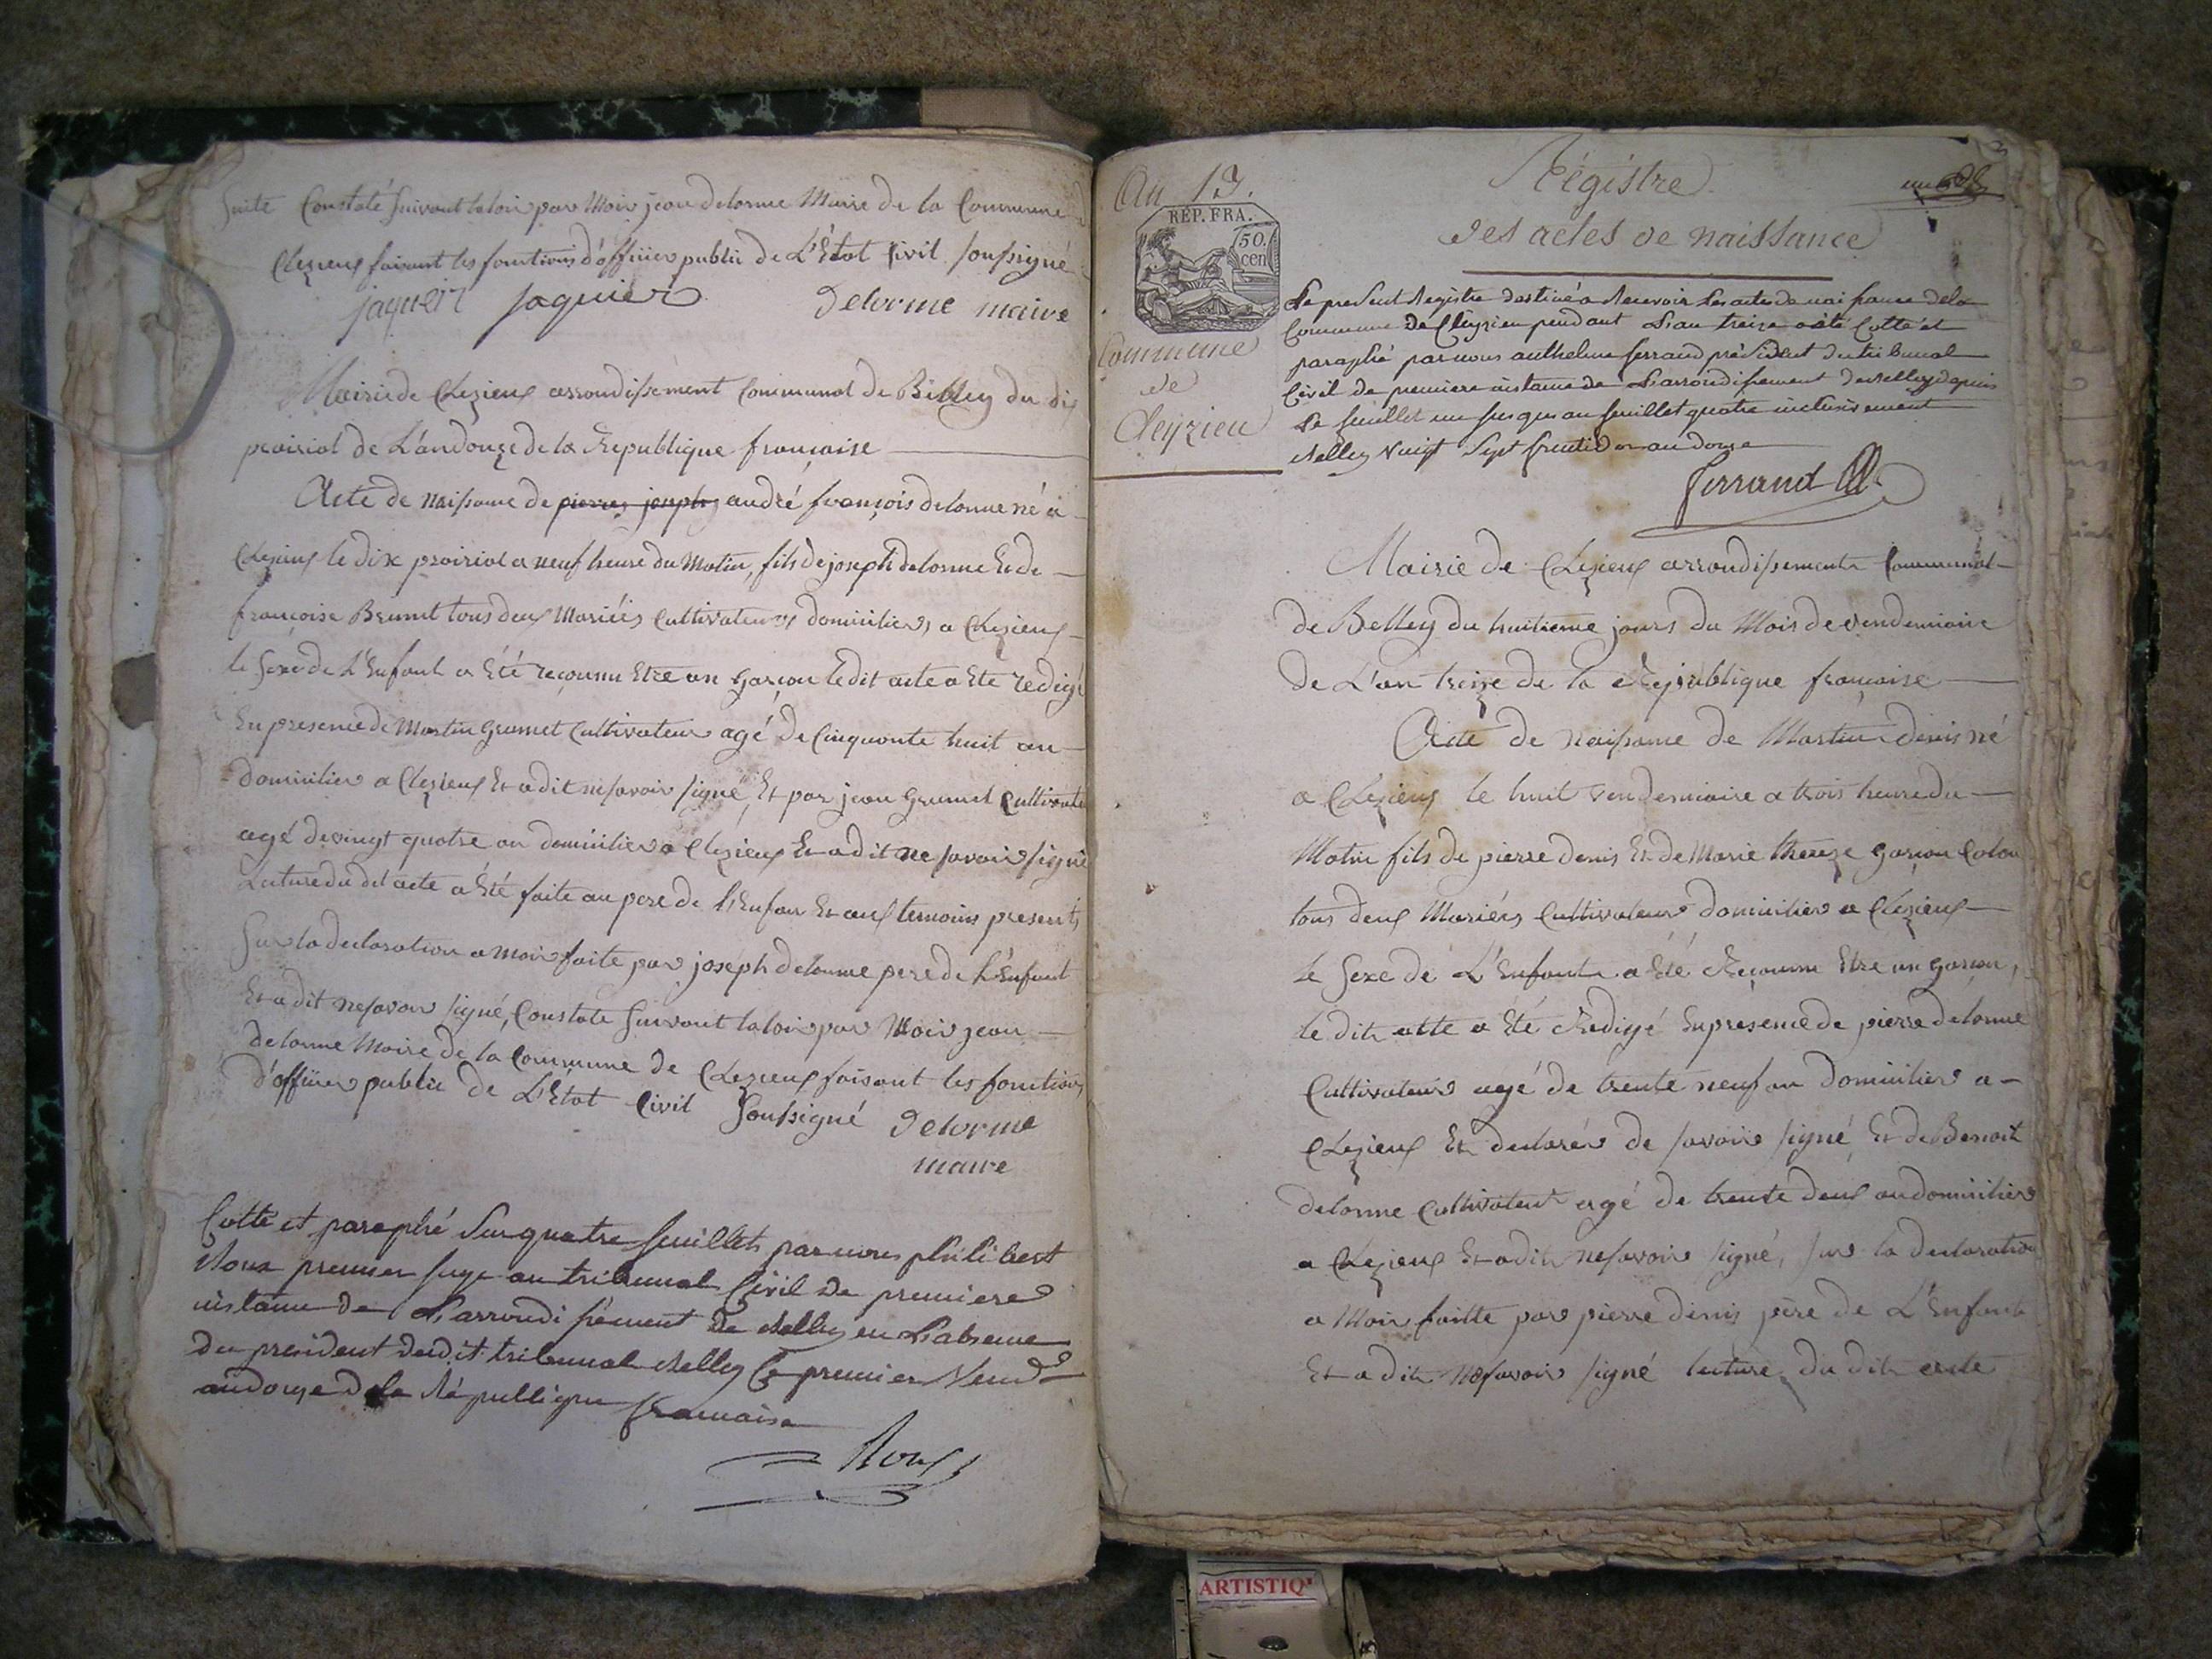 Suite Constaté Suivant la loix par Moix jean delorme Maire de la Commune
Clezieux faisant les fonctions d'offiier public de L'État Civil soussigné
jaqueir jaquier Delorme maire
Mairie de Clezieux arrondissement Communal de Belley du dix
prairial de L'an douze de la Republique françaïse
Acte de naissance de pierre joseph andré françois delorme né a
Clezieux le dix prairial a neuf heure du Matin, fils de joseph delorme Et de
françoise Brunet tous deux Mariéés Cultivateurs domiciliers a Clezieux
le sexe de L'Enfant a Été reconnu Etre un garçon ledit acte a Ete redigé
En presence de Martin grumet Cultivateur agé de Cinquante huit an
domicilier a Clezieux Et a dit ne savoir signé, Et par jean grumet Cultivate
agé de vingt quatre an domicilier a Clezieux Et a dit ne savoir signé
Lecture du dit acte a Été faite au pere de l'Enfan Et aux temoins presents
Sur la declaration a moix faite par joseph delorme pere de L'Enfant
Et a dit ne savoir signé, Constate Suivant la loix par Moix jean
delorme Maire de la Commune de Clezieux faisant les fonctions
d'offiier public de L'État Civil Soussigné Delorme
maire
Cotté et paraphé Sur quatre feuillets par nous philibert
Roux premier juge au tribunal Civil de premiere
instance de L'arrondissement de Belley en L'absence
du president dudit tribunal Belley le premier Vend.re
an douze de la République francaise
Roux
An 13.
RÉP. FRA.
50. cen
Commune
de
Cleyzieu
Régistre
des actes de naissance
un
Le present Registre destiné a Recevoir Les actes de naissance de la
Commune de Cleyzieu pendant L'an treize a été Cotté et
paraphé par nous anthelme ferrand président du tribunal
Civil de premiere instance de L'arrondissement de Belley depuis
Le feuillet un jusques au feuillet quatre inclusivement
Belley vingt Sept fructidor an douze
ferrand
Mairie de Clezieux arrondissement Communal
de Belley du huitieme jours du Mois de vendemiaire
de L'an treize de la Republique françaïse
Acte de naissance de Martin denis né
a Clezieux le huit vendemiaire a trois heure du
Matin fils de pierre denis Et de Marie therese garçon Colon
tous deux Mariéés Cultivateur domicilier a Clezieux
le sexe de L'Enfant a Été Reconnu Etre un garçon,
le dit acte a Été Redigé En presence de pierre delorme
Cultivateur agé de trente neuf an domicilier a
Clezieux Et declarér de savoir signé, Et de Benoit
delorme Cultivateur agé de trente deux an domicilier
a Clezieux Et a dit ne savoir signé, sur la declaration
a Moix faitte par pierre denis père de L'Enfant
Et a dit ne savoir signé lecture du dit acte
ARTISTIQ'